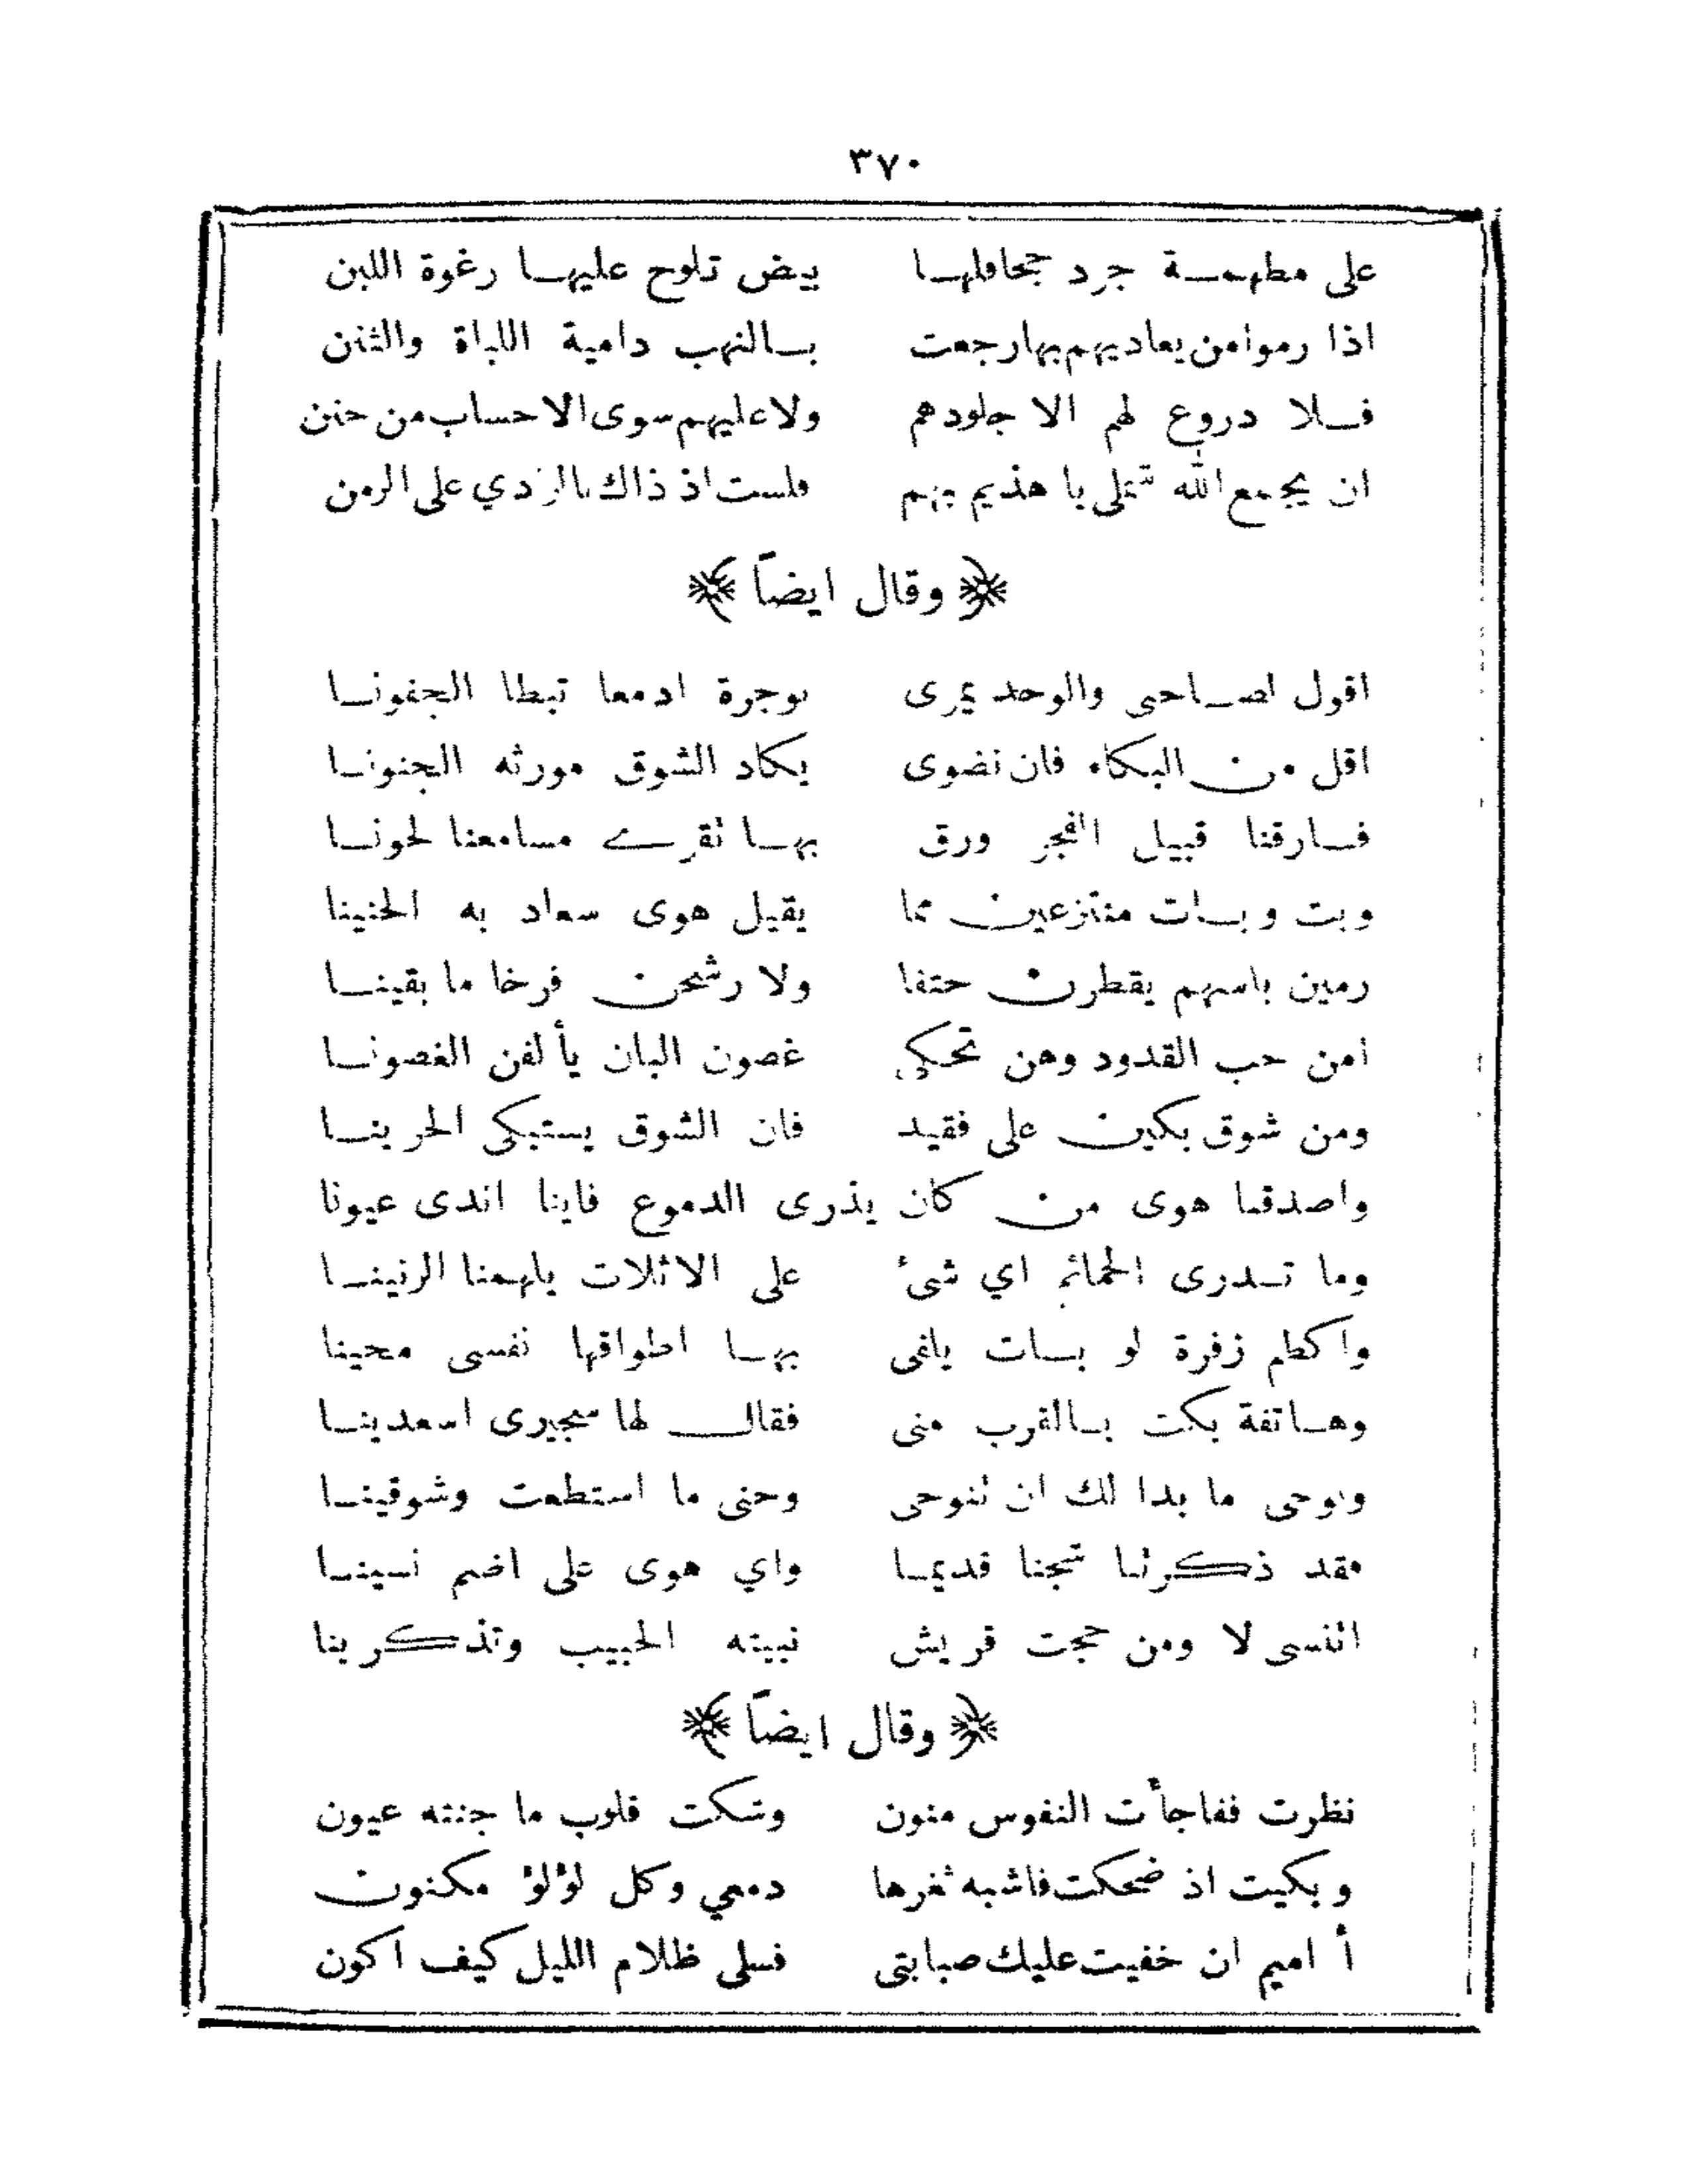 ٣٧٠
على مطهمة جرد جحافلها بيض تلوح عليها رغوة اللبن
اذا رموا من يعاديهم بها رجعت بالنهب دامية اللباة والثنن
فلا دروع لهم الا جلودهم ولا عليهم سوى الاحساب من حنن
ان يجمع الله شملى يا هذيم بهم فلست اذ ذاك بالزدي على الزمن
وقال ايضاً
اقول لصاحبى والوجد يمرى بوجرة ادمعا تبطا الجفونا
اقل من البكاء فان نضوى يكاد الشوق مورثه الجنونا
فارقنا قبيل الفجر ورق بها نقرى مسامعنا لحونا
وبت وبات منتزعين مما يقيل هوى سعاد به الحنينا
رمين باسهم يقطرن حتفا ولا رشحن فرخا ما بقينا
امن حب القدود وهن تحكى غصون البان يألفن الغصونا
ومن شوق بكين على فقيد فان الشوق يستبكى الحزينا
واصدقنا هوى من كان يذرى الدموع فاينا اندى عيونا
وما تدرى الحمائم اي شئ على الاثلات يلهمنا الرنينا
واكظم زفرة لو بات يلقى بها اطواقها نفسى محينا
وهاتفة بكت بالقرب منى فقال لها سجيرى اسعدينا
ونوحى ما بدا لك ان ننوحى وحنى ما استطعت وشوقينا
فقد ذكرتنا شجنا قديما واي هوى على اضم نسينا
اننسى لا ومن حجت قريش نبيته الحبيب وتذكرينا
وقال ايضاً
نظرت ففاجأت النفوس منون وشكت قلوب ما جنته عيون
وبكيت اذ ضحكت فاشبه ثغرها دمعي وكل لؤلؤ مكنون
أ اميم ان خفيت عليك صبابتى فسلى ظلام الليل كيف اكون